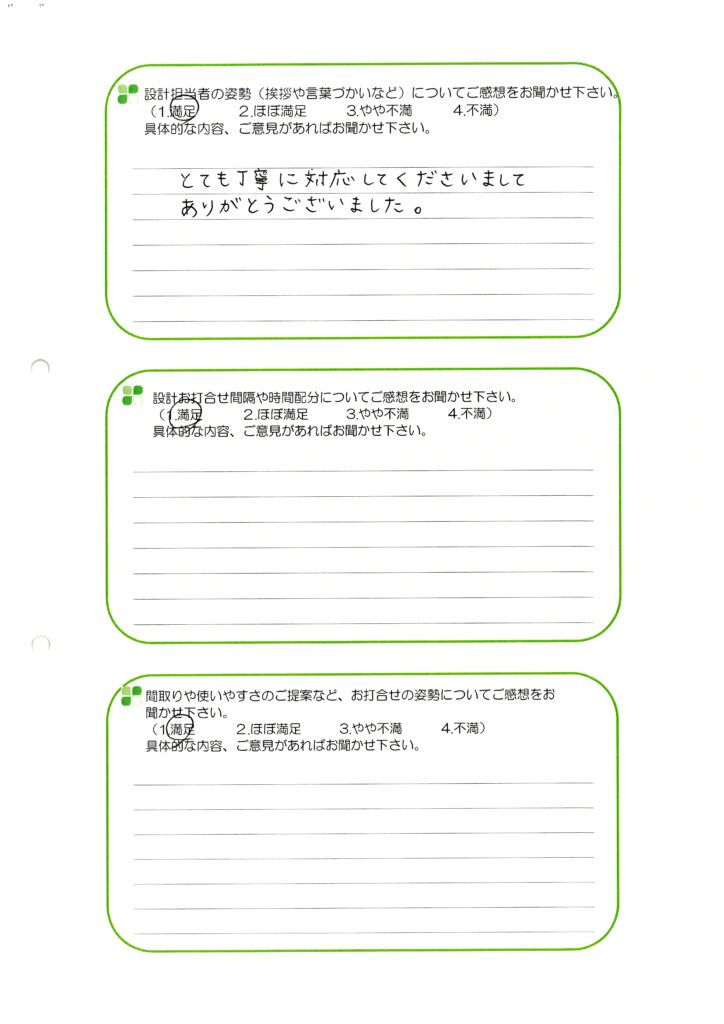 設計担当者の姿勢（挨拶や言葉づかいなど）についてご感想をお聞かせ下さい。
（1.満足　2.ほぼ満足　3.やや不満　4.不満）
具体的な内容、ご意見があればお聞かせ下さい。
とても丁寧に対応してくださいまして
ありがとうございました。
設計お打合せ間隔や時間配分についてご感想をお聞かせ下さい。
（1.満足　2.ほぼ満足　3.やや不満　4.不満）
具体的な内容、ご意見があればお聞かせ下さい。
間取りや使いやすさのご提案など、お打合せの姿勢についてご感想をお
聞かせ下さい。
（1.満足　2.ほぼ満足　3.やや不満　4.不満）
具体的な内容、ご意見があればお聞かせ下さい。